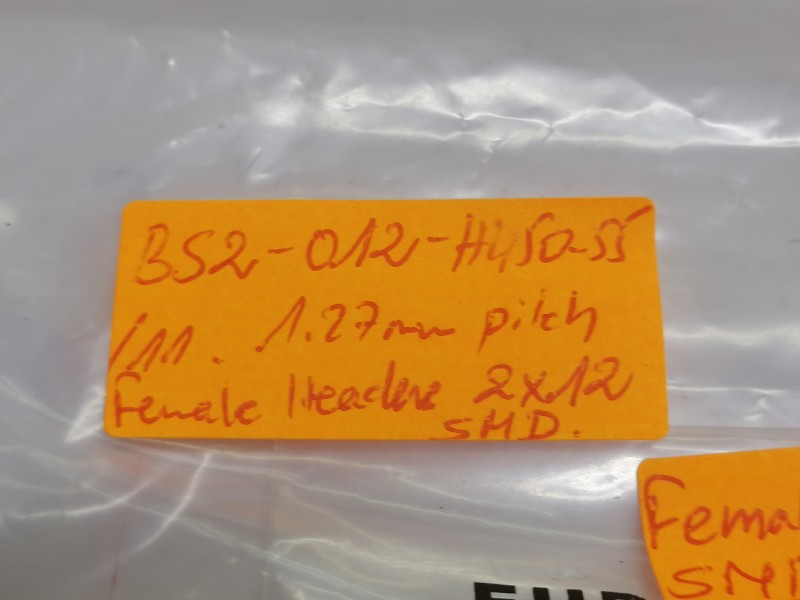 BS2-012-H450-55
/11. 1.27mm pitch
Female Header 2x12
SMD.
Fema
SMD
EUR